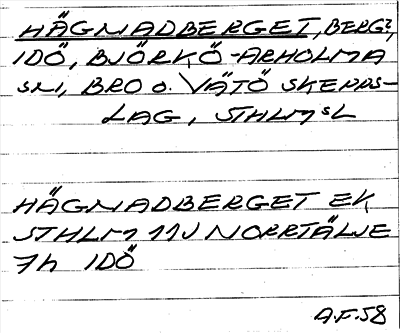 HÄGNADBERGET, BERG?,
IDÖ, BJÖRKÖ-ARHOLMA
SN, BRO O. VÄTÖ SKEPPS-
LAG, STHLMSL
HÄGNADBERGET EK
STHLM 11J NORRTÄLJE
7h IDÖ
A.F. 58